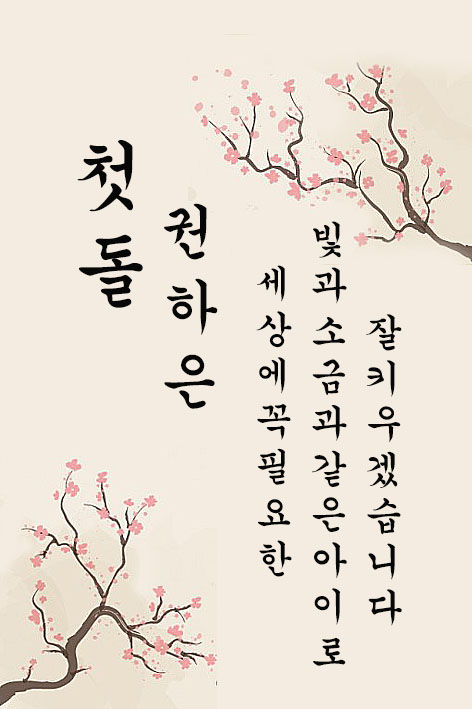 첫돌
권하은
세상에꼭필요한
빛과소금과같은아이로
잘키우겠습니다